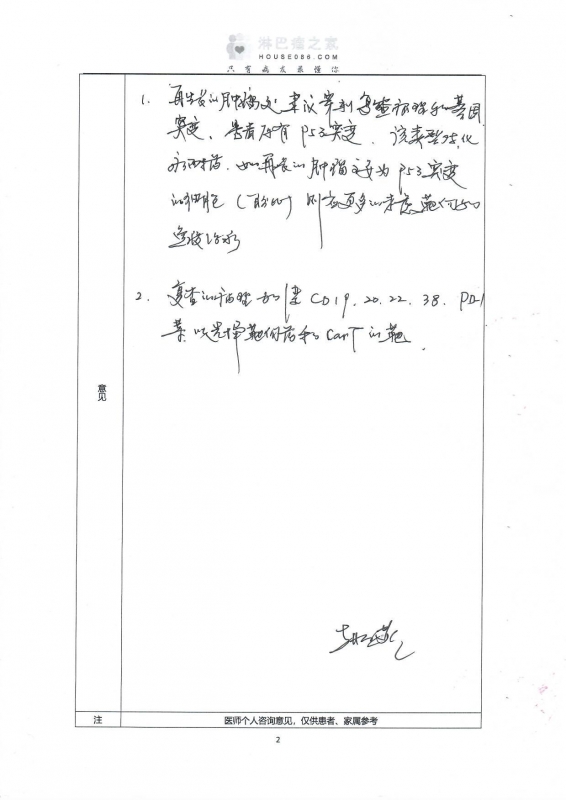 淋巴瘤之家
HOUSE086.COM
只有病友最懂你
1. 再生长的肿瘤处建议穿刺复查病理和基因
突变,患者原有P53突变,该类型对化
疗耐药,如再长的肿瘤主要为P53突变
的细胞()则应更多的考虑靶向和
免疫治疗
2. 复查的病理加染CD19.20.22.38.PD-1
等以选择靶向药和CarT的靶
意见
注 医师个人咨询意见,仅供患者、家属参考
2